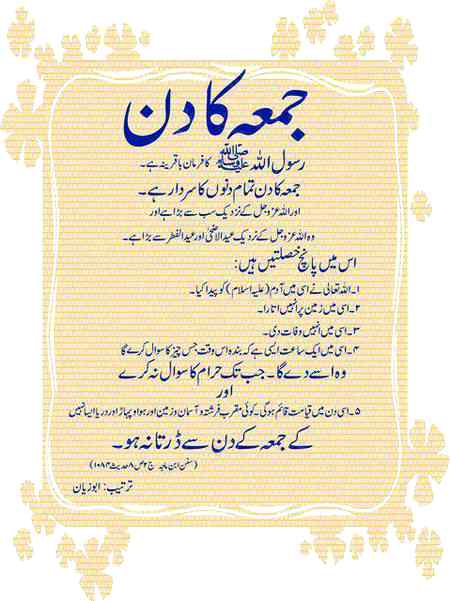 جمعہ کا دن
رسول اللہ ﷺ کا فرمان باقرینہ ہے۔
جمعہ کا دن تمام دنوں کا سردار ہے۔
اور اللہ عزوجل کے نزدیک سب سے بڑا ہے اور
وہ اللہ عزوجل کے نزدیک عید الاضحیٰ اور عید الفطر سے بڑا ہے۔
اس میں پانچ خصلتیں ہیں:
۱۔ اللہ تعالیٰ نے اسی میں آدم (علیہ اسلام) کو پیدا کیا۔
۲۔ اسی میں زمین پر انہیں اتارا۔
۳۔ اسی میں انہیں وفات دی۔
۴۔ اسی میں ایک ساعت ایسی ہے کہ بندہ اس وقت جس چیز کا سوال کرے گا
وہ اسے دے گا۔ جب تک حرام کا سوال نہ کرے
اور
۵۔ اسی دن میں قیامت قائم ہوگی۔ کوئی مقرب فرشتہ و آسمان و زمین اور ہوا و پہاڑ اور دریا ایسا نہیں
کے جمعہ کے دن سے ڈرتا نہ ہو۔
(سنن ابن ماجہ ج ۲ ص ۸ حدیث ۱۰۸۴)
ترتیب: ابوزیان